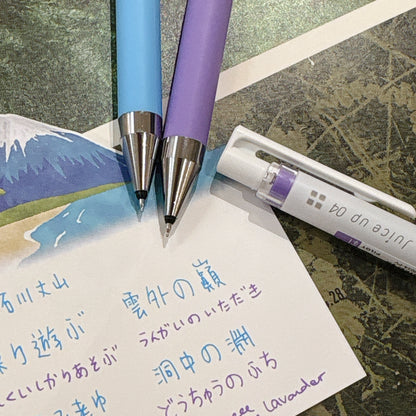 石川丈山
雲外の巓
うんがいのいただき
り遊ぶ
くいしかりあそぶ
洞中の淵
どうちゅうのふち
Lavander
Juice up 04
28